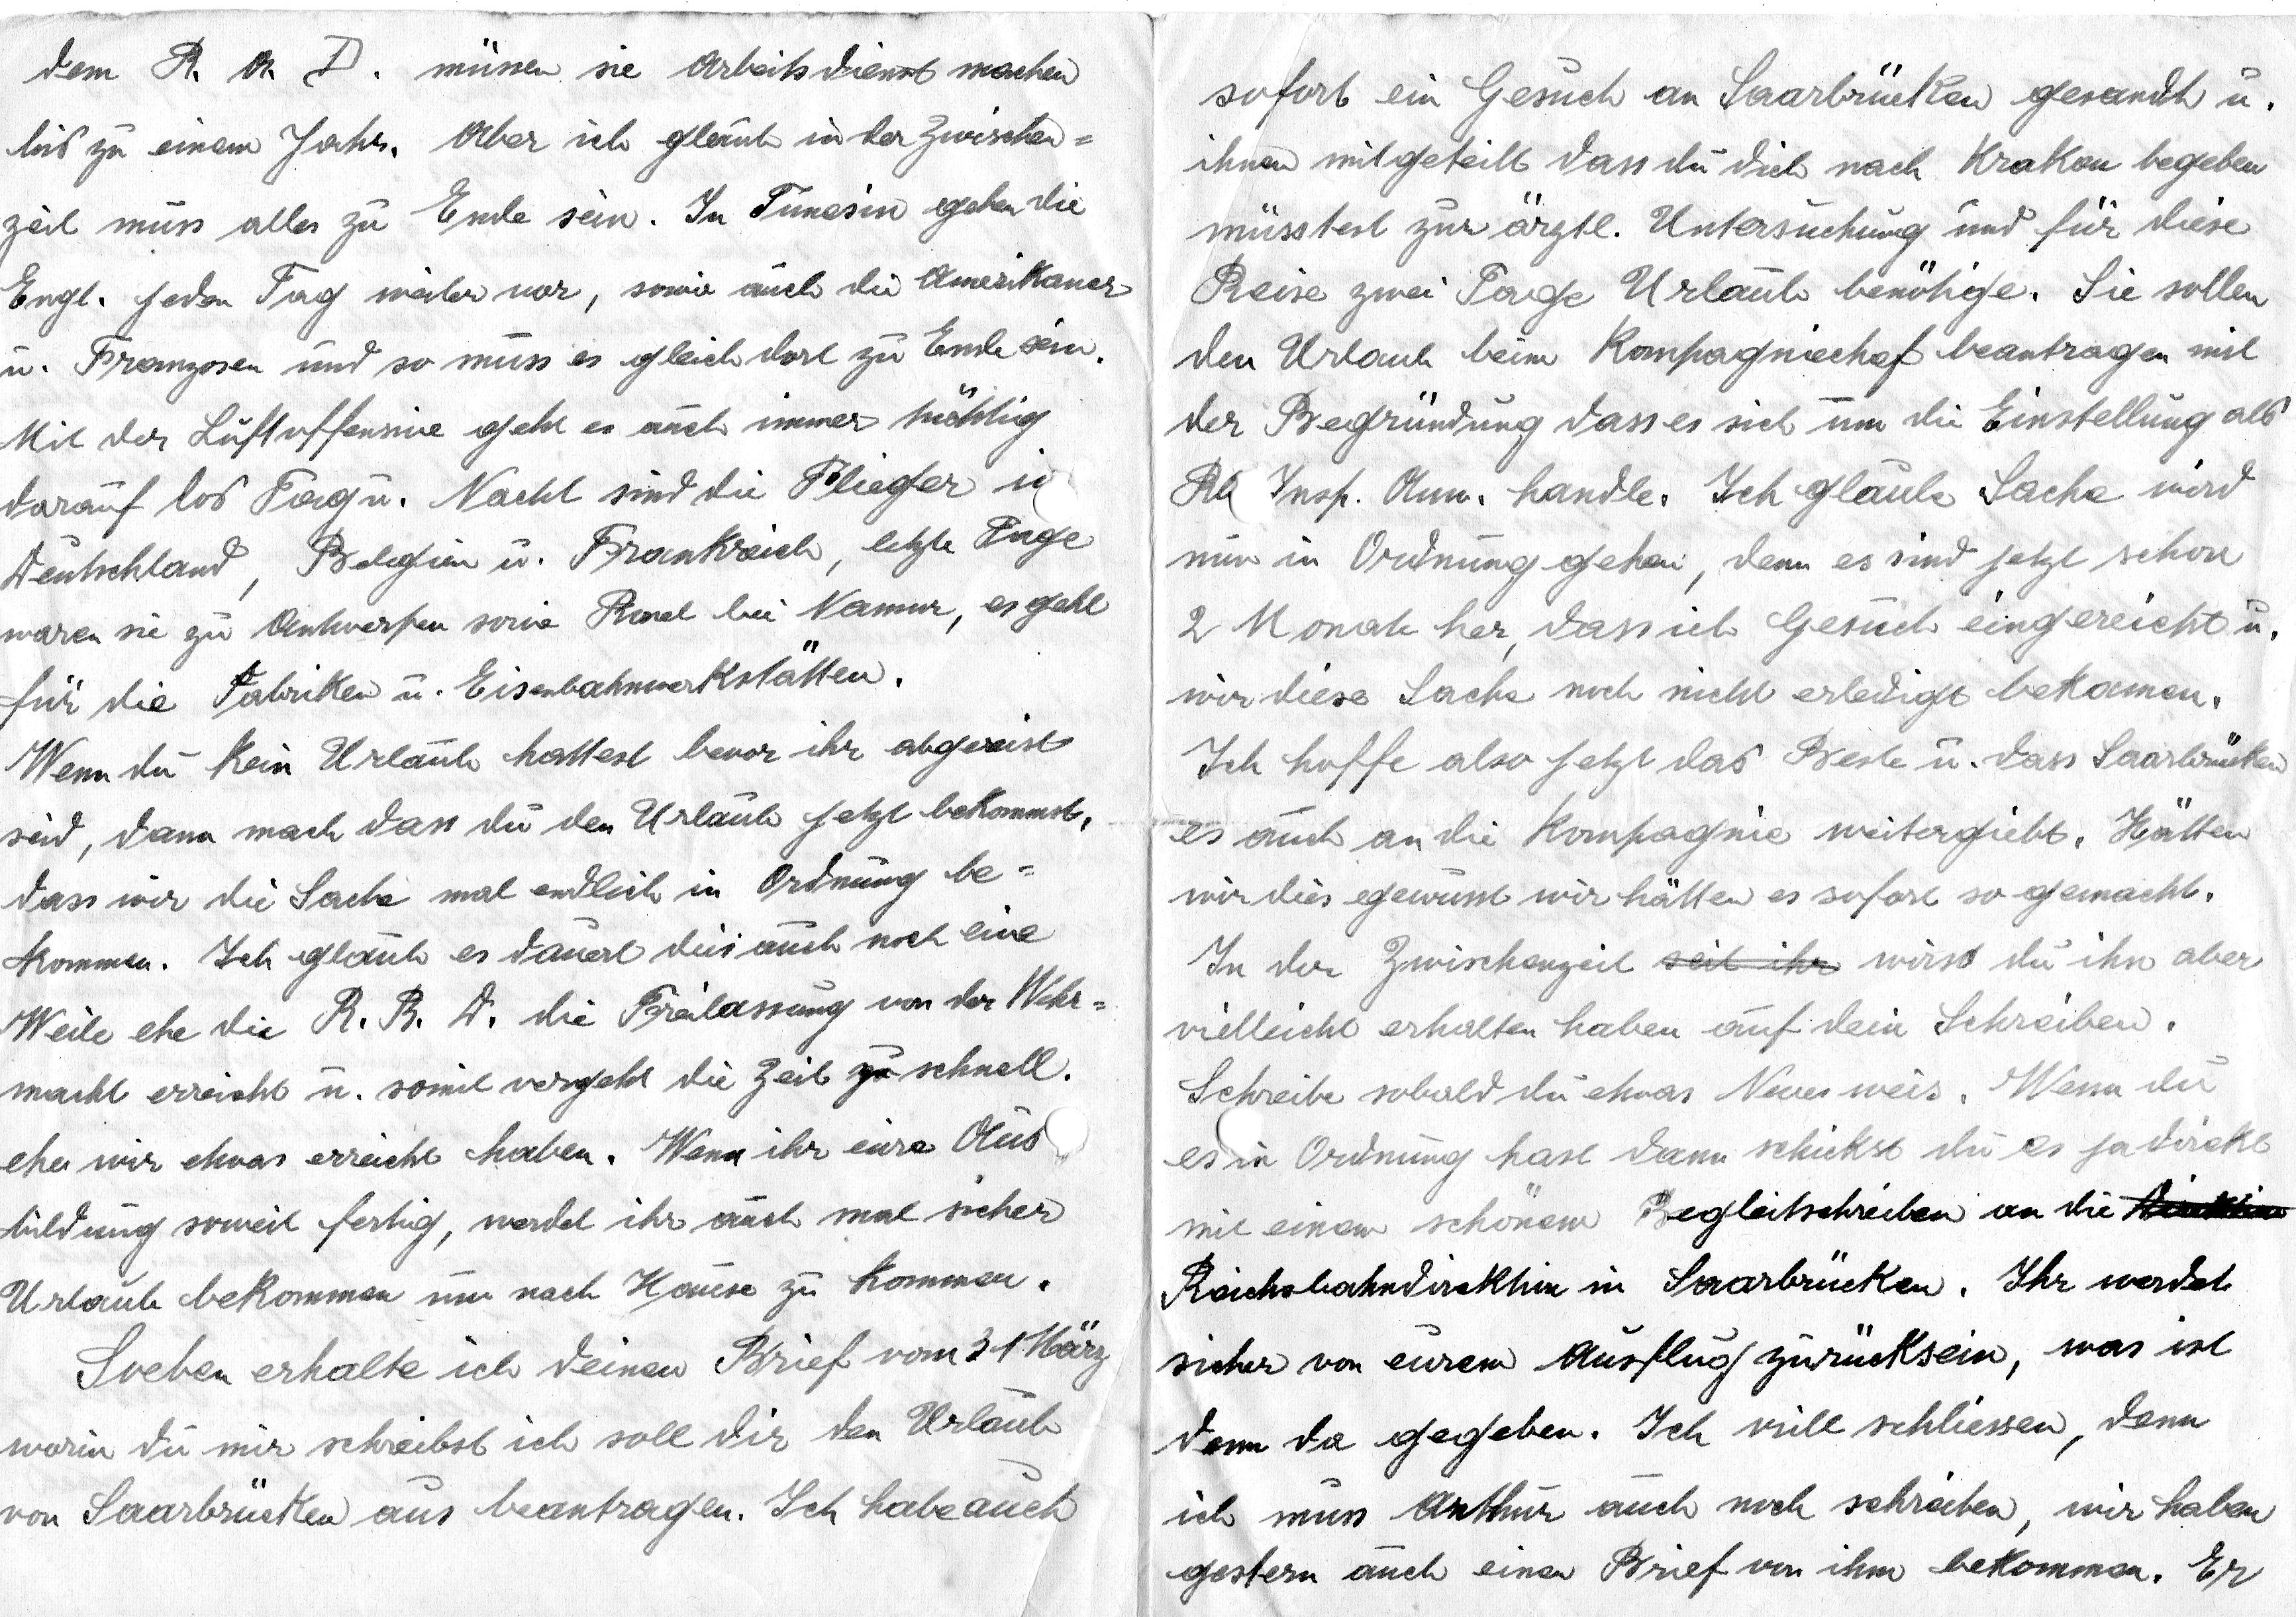 dem R. A. D. müssen sie Arbeitsdienst machen
bis zu einem Jahr. Aber ich glaub in der Zwischen=
zeit muss alles zu Ende sein. In Tunesin gehen die
Engl. jeden Tag weiter vor, sowie auch die Amerikaner
u. Franzosen und so muss es gleich dort zu Ende sein.
Mit der Luftoffensive geht es auch immer tüchtig
darauf los Tag u. Nacht sind die Flieger in
Deutschland, Belgien u. Frankreich, letzte Tage
waren sie zu Antwerpen sowie Ronet bei Namur, es geht
für die Fabriken u. Eisenbahnwerkstätten.
Wenn du kein Urlaub hattest bevor ihr abgereist
seid, dann mach dass du den Urlaub jetzt bekommst,
dass wir die Sache mal endlich in Ordnung be=
kommen. Ich glaub es dauert dies auch noch eine
Weile ehe die R. B. D. die Freilassung von der Wehr=
macht erreicht u. somit vergeht die Zeit zu schnell.
eher wir etwas erreicht haben. Wenn ihr eure Aus
bildung soweit fertig, werdet ihr auch mal sicher
Urlaub bekommen um nach Hause zu kommen.
Soeben erhalte ich deinen Brief vom 31 März
worin du mir schreibst ich soll dir den Urlaub
von Saarbrücken aus beantragen. Ich habe auch
sofort ein Gesuch an Saarbrücken gesandt u.
ihnen mitgeteilt dass du dich nach Krakau begeben
müsstest zur ärztl. Untersuchung und für diese
Reise zwei Tage Urlaub benötige. Sie sollen
den Urlaub beim Kompagniechef beantragen mit
der Begründung dass es sich um die Einstellung als
Rb Insp. Anw. handle. Ich glaube Sache wird
nun in Ordnung gehen, denn es sind jetzt schon
2 Monate her, dass ich Gesuch eingereicht u.
wir diese Sache noch nicht erledigt bekamen.
Ich hoffe also jetzt das Beste u. dass Saarbrücken
es auch an die Kompagnie weitergiebt. Hätten
wir dies gewusst wir hätten es sofort so gemacht.
In der Zwischenzeit seit ihr wirst du ihn aber
vielleicht erhalten haben auf dein Schreiben.
Schreibe sobald du etwas Neues weis. Wenn du
es in Ordnung hast dann schickst du es ja direkt
mit einem schönem Begleitschreiben an die
Reichsbahndirektion in Saarbrücken. Ihr werdet
sicher von eurem Ausflug zurücksein, was ist
denn da gegeben. Ich will schliessen, denn
ich muss Arthur auch noch schreiben, wir haben
gestern auch einen Brief von ihm bekommen. Er